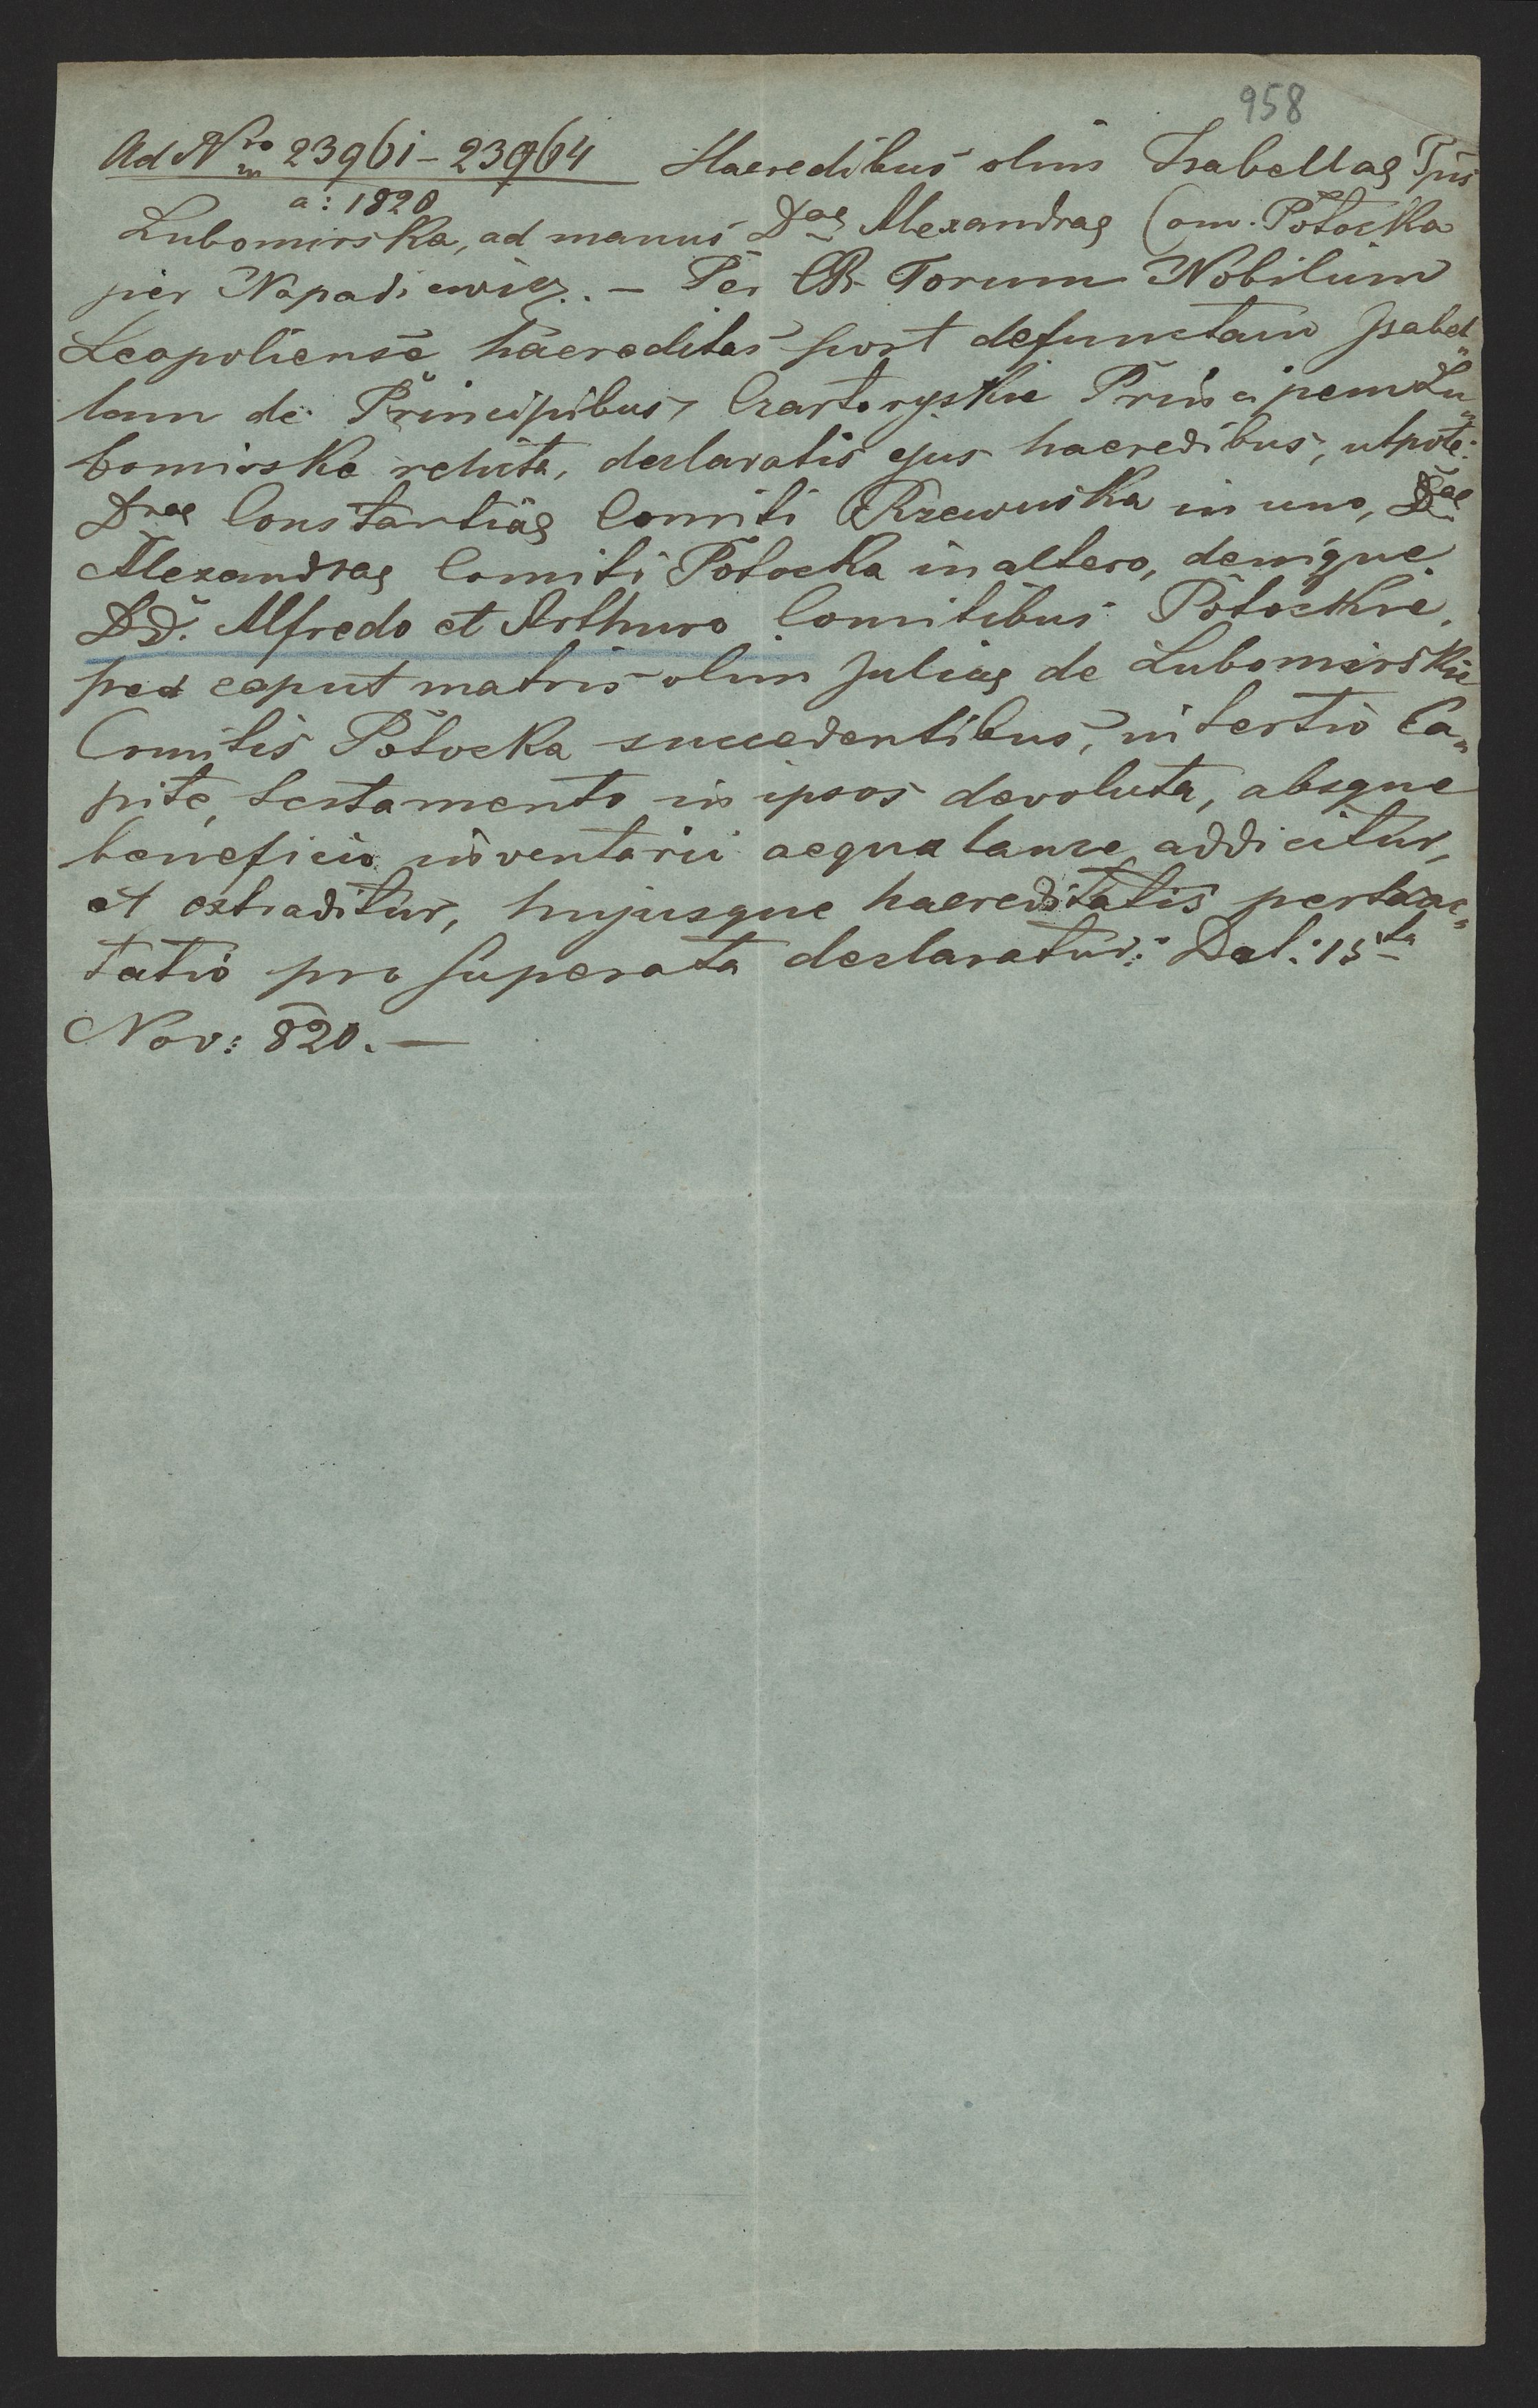 958
Ad Nro 23961 - 23964 Haeredibus olim Isabellae Ppis
a: 1820
Lubomirska, ad manus Dae Alexandrae Com. Potocka
per Napadiewicz. — Per CR. Forum Nobilium
Leopoliense haereditas post defunctam Isabel„
lam de Principibus Czartoryskie Principem Lu„
bomirska relicta, declaratis ejus haeredibus, utpote:
Dnae Constantiae Comiti Rzewuska in uno, Dae
Alexandrae Comiti Potocka in altero, denique
DD. Alfredo et Arthuro Comitibus Potockie,
per caput matris olim Juliae de Lubomirskie
Comitis Potocka succedentibus, in tertio Ca„
pite, testamento in ipsos devoluta, absque
beneficio inventarii aequa lance addicitur,
et extraditur, hujusque haereditatis pertrac„
tatio pro superata declaratur: Dat: 15ta
Nov: 820. —